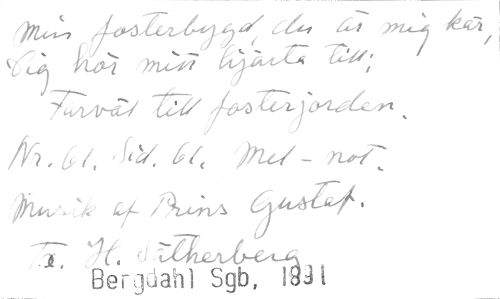 Min fosterbygd, du är mig kär,
Dig hör mitt hjärta till;
Farväl till fosterjorden.
Nr. 61. Sid. 61. Mel-not.
Musik af Prins Gustaf.
H. Sätherberg
Bergdahl Sgb, 1891